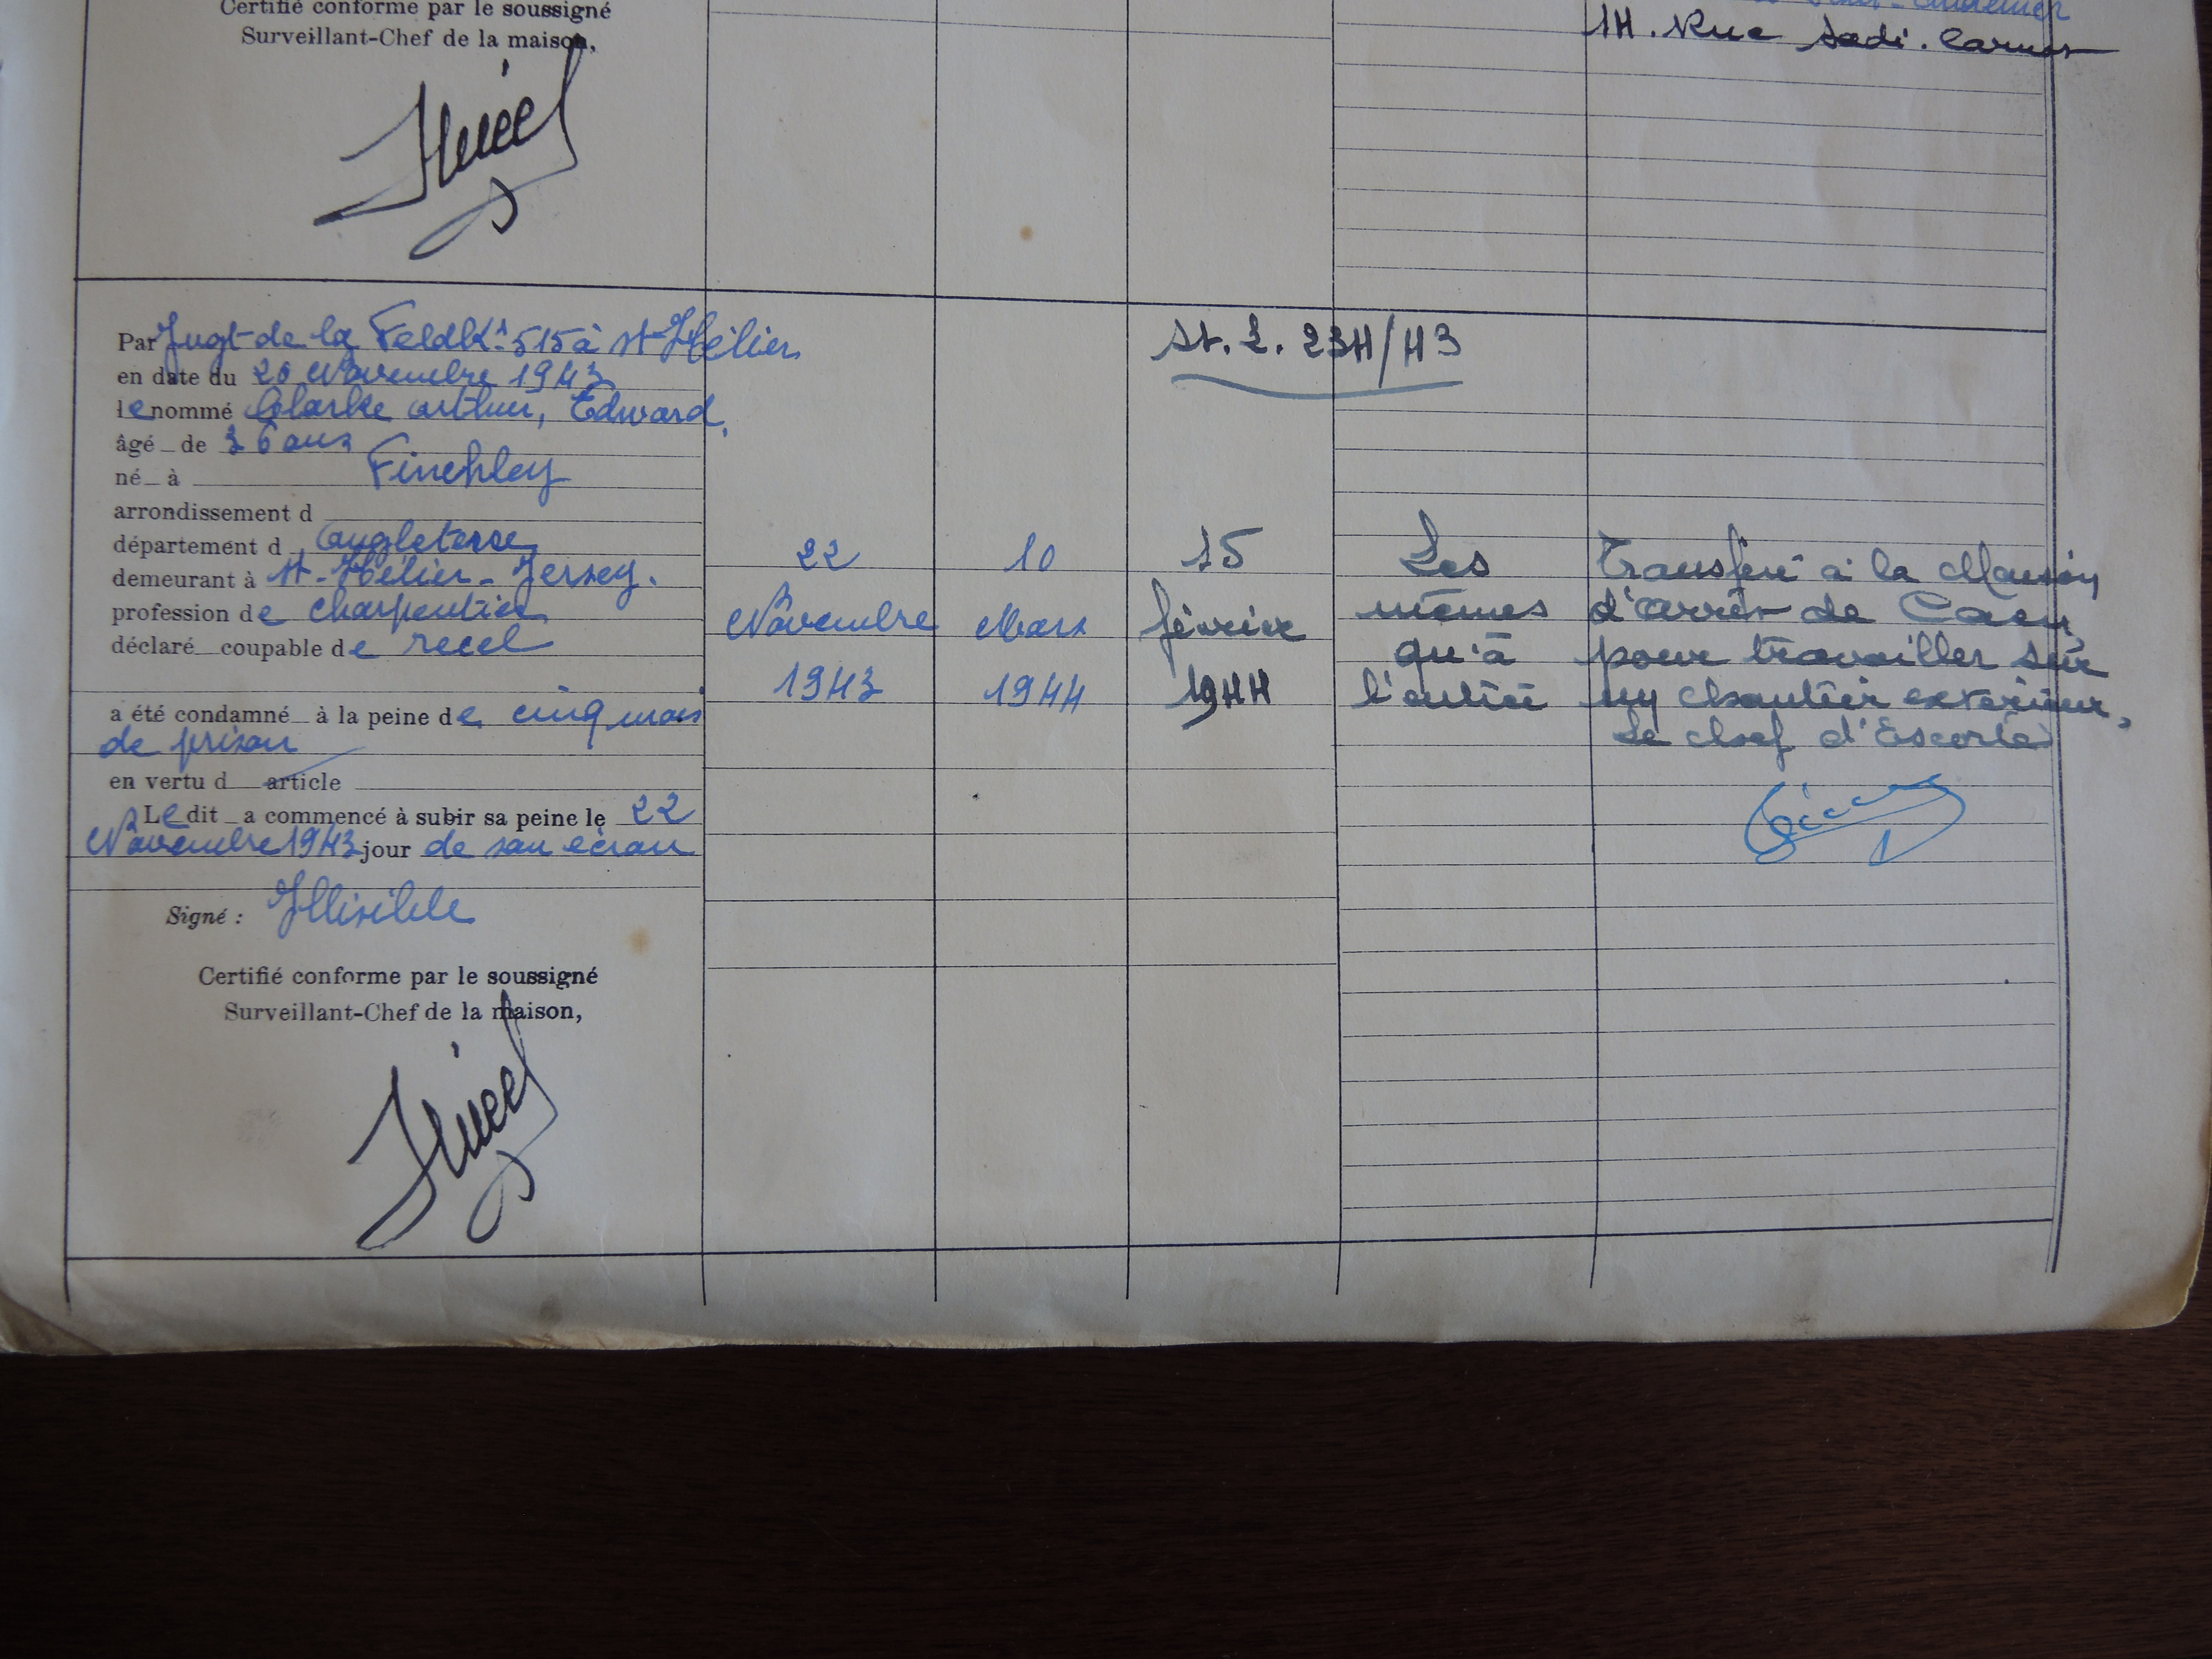 Certifié conforme par le soussigné
Surveillant-Chef de la maison,
14. Rue Sadi. Carnot
Par Jugt de la Feldkt 515 à St-Hélier
en date du 20 Novembre 1943
le nommé Clarke Arthur, Edward.
âgé de 36 ans
né à Finchley
arrondissement d
département d Angleterre
demeurant à St-Hélier - Jersey.
profession de charpentier
déclaré coupable de recel
a été condamné à la peine de cinq mois
de prison
en vertu d article
Le dit a commencé à subir sa peine le 22
Novembre 1943 jour de son écrou
Signé : Illisible
Certifié conforme par le soussigné
Surveillant-Chef de la maison,
22
Novembre
1943
10
Mars
1944
St. L. 234/43
15
février
1944
Les
mêmes
qu'à
l'entrée
Transféré à la Maison
d'arrêt de Caen,
pour travailler sur
un chantier extérieur,
Le chef d'Escorte